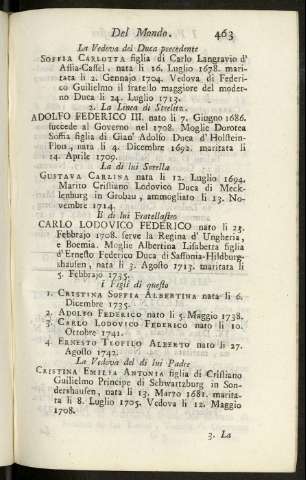 Del Mondo. 463
La Vedova del Duca precedente
SOFFIA CARLOTTA figlia di Carlo Langravio d'
Assia-Cassel. nata li 16. Luglio 1678. mari-
tata li 2. Gennajo 1704. Vedova di Federi-
co Guilielmo il fratello maggiore del moder-
no Duca li 24. Luglio 1713.
2. La Linea di Strelitz.
ADOLFO FEDERICO III. nato li 7. Giugno 1686.
succede al Governo nel 1708. Moglie Dorotea
Soffia figlia di Gian' Adolfo Duca d'Holstein-
Plon, nata li 4. Dicembre 1692. maritata li
14. Aprile 1709.
La di lui Sorella
GUSTAVA CARLINA nata li 12. Luglio 1694.
Marito Cristiano Lodovico Duca di Meck-
lenburg in Grobau, ammogliato li 13. No-
vembre 1714.
E di lui Fratellastro
CARLO LODOVICO FEDERICO nato li 23.
Febbrajo 1708. serve la Regina d'Ungheria,
e Boemia. Moglie Albertina Lisabetta figlia
d'Ernesto Federico Duca di Sassonia-Hildburg-
hausen, nata li 3. Agosto 1713. maritata li
5. Febbrajo 1735.
i Figli di questo
1. CRISTINA SOFFIA ALBERTINA nata li 6.
Dicembre 1735.
2. ADOLFO FEDERICO nato li 5. Maggio 1738.
3. CARLO LODOVICO FEDERICO nato li 10.
Ottobre 1741.
4. ERNESTO TEOFILO ALBERTO nato li 27.
Agosto 1742.
La Vedova del di lui Padre
CRISTINA EMILIA ANTONIA figlia di Cristiano
Guilielmo Principe di Schwartzburg in Son-
dershausen, nata li 13. Marzo 1681. marita-
ta li 8. Luglio 1705. Vedova li 12. Maggio
1708.
3. La